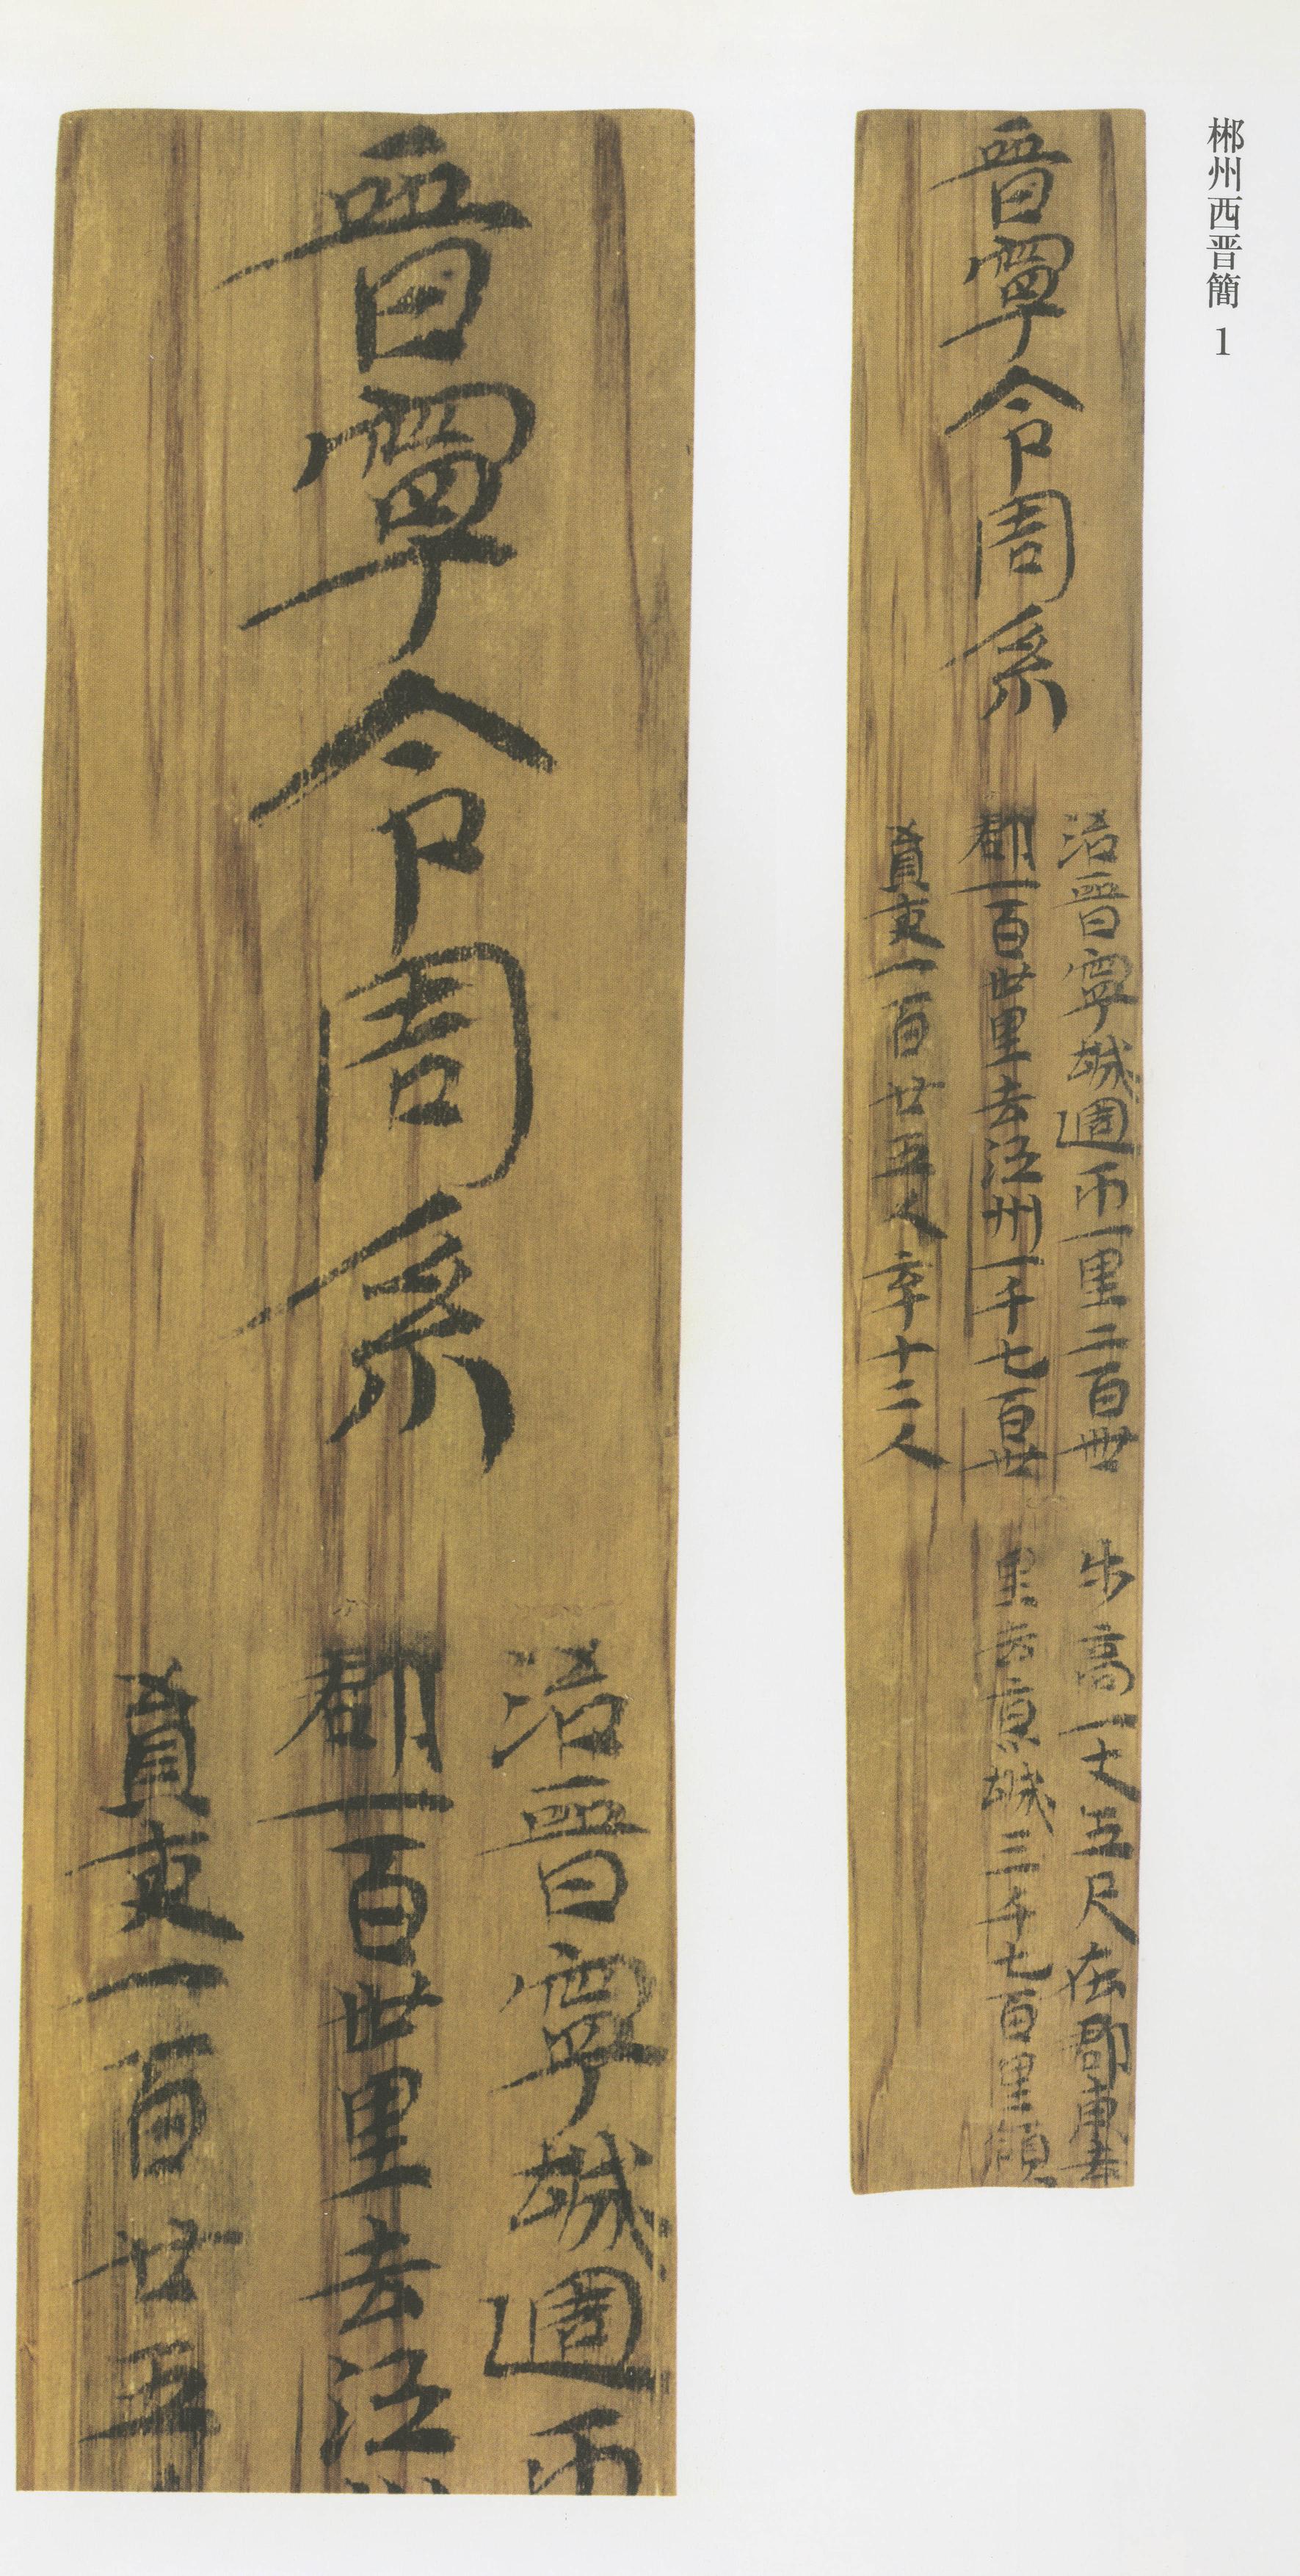 郴州西晋簡 1
晉寧令周系
治晉寧城周帀一里二百卌步高一丈五尺在郡東去
郡一百卅里去江州一千七百卅里去京城三千七百里領
員吏一百廿五人卒十二人
晉寧令周系
治晉寧城週帀
郡一百卅里去江
員吏一百廿五